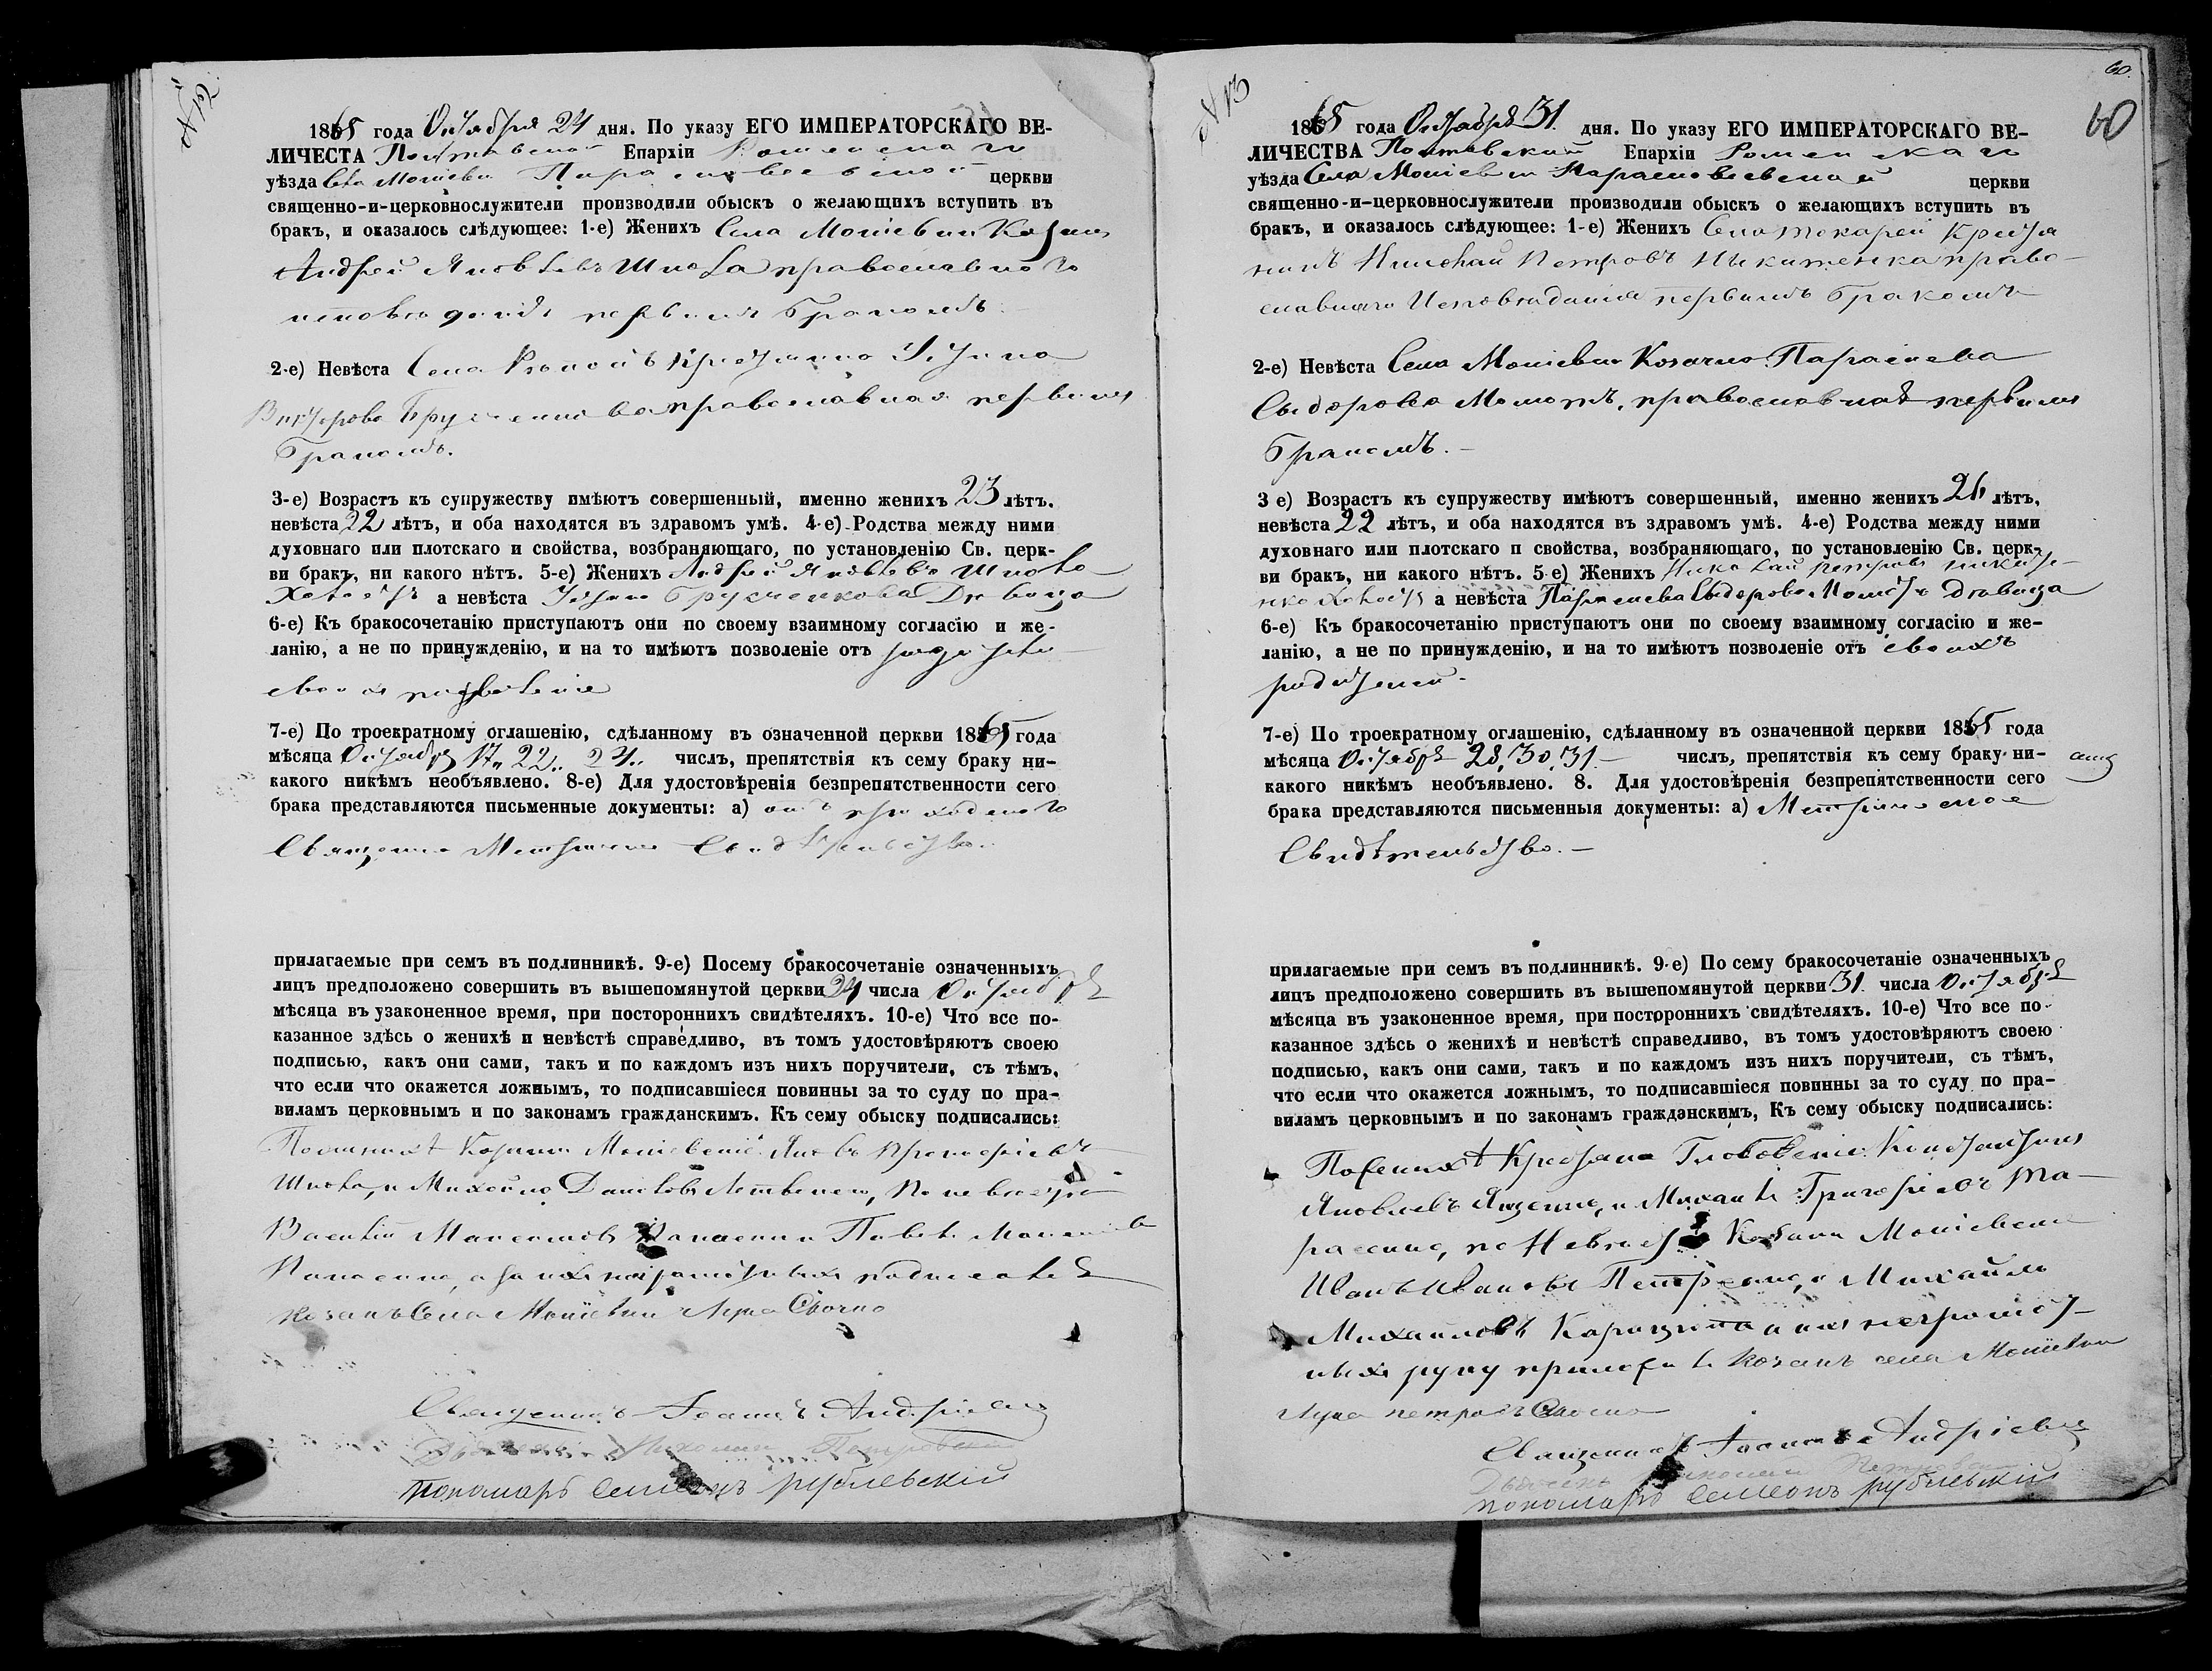 № 12
1865 года Октября 24 дня. По указу ЕГО ИМПЕРАТОРСКАГО ВЕ-
ЛИЧЕСТА Полтавской Епархіи Роменскаго
уѣзда Села Мокіевки Параскевіевской церкви
священно-и-церковнослужители производили обыскъ о желающихъ вступить въ
бракъ, и оказалось слѣдующее: 1-е) Женихъ Села Мокіевки Козакъ
Андрей Яковлевъ православного
исповѣданія первымъ бракомъ
2-е) Невѣста Села Крестьянка Устина
православная первымъ
бракомъ.
3-е) Возрастъ къ супружеству имѣютъ совершенный, именно женихъ 23 лѣтъ.
невѣста 22 лѣтъ, и оба находятся въ здравомъ умѣ. 4-е) Родства между ними
духовнаго или плотскаго и свойства, возбраняющаго, по установленію Св. церк-
ви бракъ, ни какого нѣтъ. 5-е) Женихъ Андрей Яковлевъ
Холостъ а невѣста Устина Дѣвица
6-е) Къ бракосочетанію приступаютъ они по своему взаимному согласію и же-
ланію, а не по принужденію, и на то имѣютъ позволеніе отъ
своихъ позволеніе
7-е) По троекратному оглашенію, сдѣланному въ означенной церкви 1865 года
мѣсяца Октября 17, 22, 24 числъ, препятствія къ сему браку ни-
какого никѣмъ необъявлено. 8-е) Для удостовѣренія безпрепятственности сего
брака представляются письменные документы: а) отъ приходского
Священника Метрическое Свидѣтельство.
прилагаемые при семъ въ подлинникѣ. 9-е) Посему бракосочетаніе означенныхъ
лицъ предположено совершить въ вышепомянутой церкви 24 числа Октября
мѣсяца въ узаконенное время, при постороннихъ свидѣтеляхъ. 10-е) Что все по-
казанное здѣсь о женихѣ и невѣстѣ справедливо, въ томъ удостовѣряютъ своею
подписью, какъ они сами, такъ и по каждомъ изъ нихъ поручители, съ тѣмъ,
что если что окажется ложнымъ, то подписавшіеся повинны за то суду по пра-
виламъ церковнымъ и по законамъ гражданскимъ. Къ сему обыску подписались:
По женихѣ Козаки Мокіевскіе Яковъ
и Михайло Даниловъ по невѣстѣ
Василій Максимовъ и Павелъ
а за ихъ неграмотныхъ подписался
козакъ Села Мокіевки Лука
Священникъ Іоаннъ Андріевъ
Дьячекъ Николай Петровскій
пономаръ Семеонъ рублевскій
60.
60
№ 13
1865 года Октября 31 дня. По указу ЕГО ИМПЕРАТОРСКАГО ВЕ-
ЛИЧЕСТВА Полтавской Епархіи Роменскаго
уѣзда Села Мокіевки Параскевіевской церкви
священно-и-церковнослужители производили обыскъ о желающихъ вступить въ
бракъ, и оказалось слѣдующее: 1-е) Женихъ Села токарей Крестья
нинъ Николай Петровъ Никитенко право-
славнаго Исповѣданія первымъ бракомъ
2-е) Невѣста Села Мокіевки Козачка Параскева
Сыдорова православная первымъ
бракомъ.-
3 е) Возрастъ къ супружеству имѣютъ совершенный, именно женихъ 26 лѣтъ,
невѣста 22 лѣтъ, и оба находятся въ здравомъ умѣ. 4-е) Родства между ними
духовнаго или плотскаго п свойства, возбраняющаго, по установленію Св. церк-
ви бракъ, ни какого нѣтъ. 5-е) Женихъ Николай Петровъ Никите-
нко Холостъ а невѣста Параскева Сыдорова дѣвица
6-е) Къ бракосочетанію приступаютъ они по своему взаимному согласію и же-
ланію, а не по принужденію, и на то имѣютъ позволеніе отъ своихъ
родителей.
7-е) По троекратному оглашенію, сдѣланному въ означенной церкви 1865 года
мѣсяца Октября 28, 30, 31 числъ, препятствія къ сему браку ни-
какого никѣмъ необъявлено. 8. Для удостовѣренія безпрепятственности сего
брака представляются письменныя документы: а) Метрическое
Свидѣтельство.-
прилагаемые при семъ въ подлинникѣ. 9-е) По сему бракосочетаніе означенныхъ
лицъ предположено совершить въ вышепомянутой церкви 31 числа Октября
мѣсяца въ узаконенное время, при постороннихъ свидѣтеляхъ. 10-е) Что все по-
казанное здѣсь о женихѣ и невѣстѣ справедливо, въ томъ удостовѣряютъ своею
подписью, какъ они сами, такъ и по каждомъ изъ нихъ поручители, съ тѣмъ,
что если что окажется ложнымъ, то подписавшіеся повинны за то суду по пра-
виламъ церковнымъ и по законамъ гражданскимъ, Къ сему обыску подписались:
По женихѣ Крестьяне Константинъ
Яковлевъ и Михаилъ Григоріевъ Та-
расенко, по Невѣстѣ Козаки Мокіевски
Иванъ Ивановъ Петренко, и Михайло
Михайловъ а ихъ неграмот-
ныхъ руку приложилъ Козакъ села Мокіевки
Лука петровъ
Священникъ Іоаннъ Андріевъ
Дьячекъ Николай Петровскій
пономаръ Семеонъ рублевскій